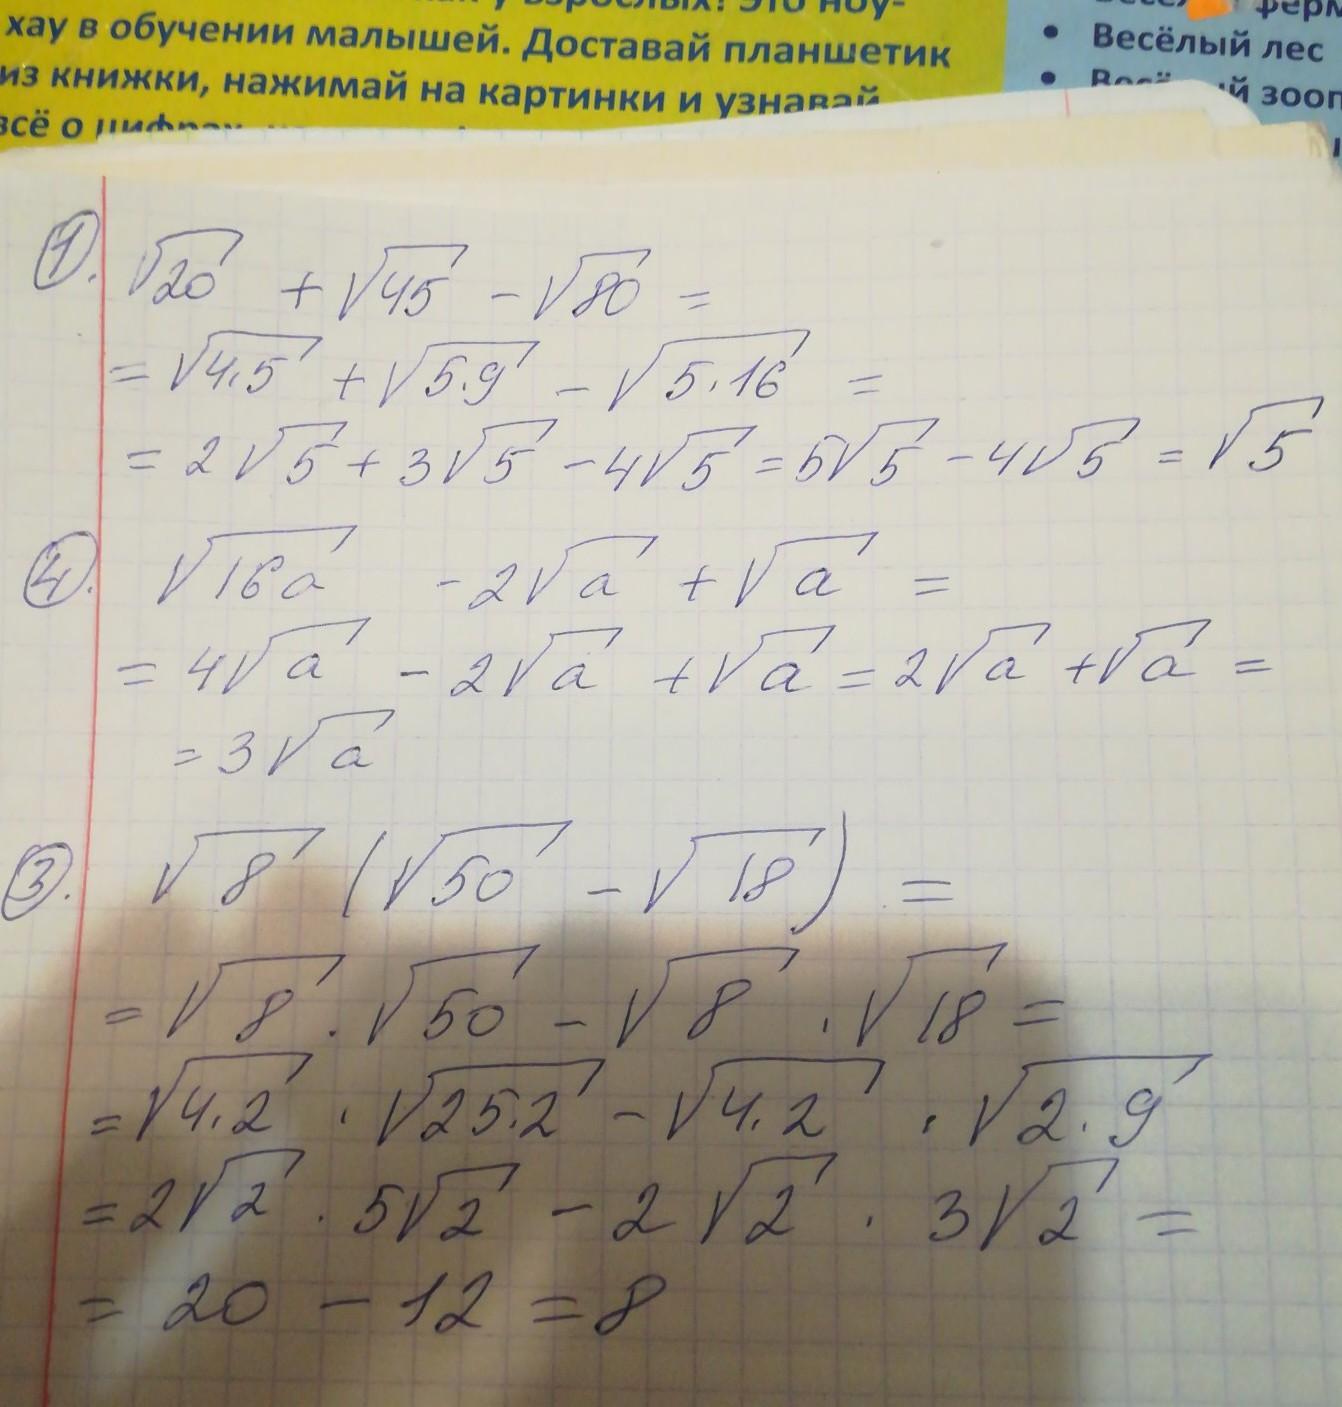 у взрослых! Это ноу-
хау в обучении малышей. Доставай планшетик
из книжки, нажимай на картинки и узнавай
всё о цифрах,
• Весёлый лес
①. √20 + √45 - √80 =
= √4.5 + √5.9 - √5.16 =
= 2√5 + 3√5 - 4√5 = 5√5 - 4√5 = √5
②. √16a - 2√a + √a =
= 4√a - 2√a + √a = 2√a + √a =
= 3√a
③. √8 (√50 - √18) =
= √8 . √50 - √8 . √18 =
= √4.2 . √25.2 - √4.2 . √2.9
= 2√2 . 5√2 - 2√2 . 3√2 =
= 20 - 12 = 8